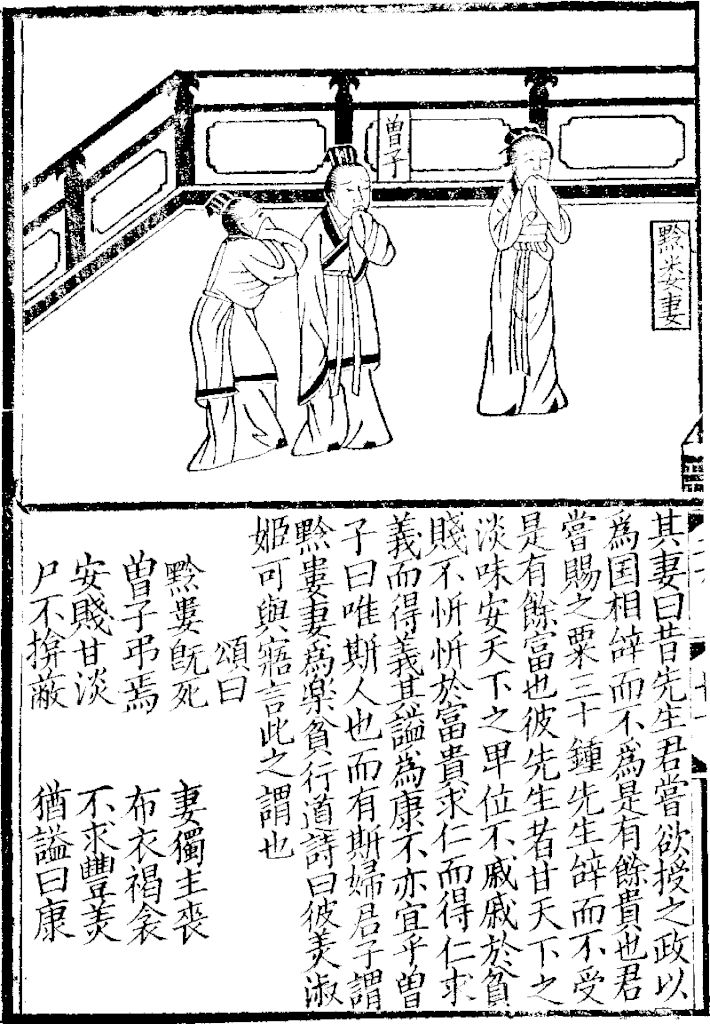 黔娄妻
曽子
其妻曰昔先生君嘗欲授之政以
爲国相辝而不爲是有餘貴也君
嘗賜之粟三十鍾先生辝而不受
是有餘富也彼先生者甘天下之
淡味安天下之卑位不戚戚於貧
賤不忻忻於富貴求仁而得仁求
義而得義其謚爲康不亦宜乎曽
子曰唯斯人也而有斯婦君子謂
黔婁妻爲楽貧行道詩曰彼羙淑
姬可與寤言此之謂也
頌曰
黔婁旣死 妻獨主喪
曽子弔焉 布衣褐衾
安賤甘淡 不求豐羙
尸不揜蔽 猶謚曰康